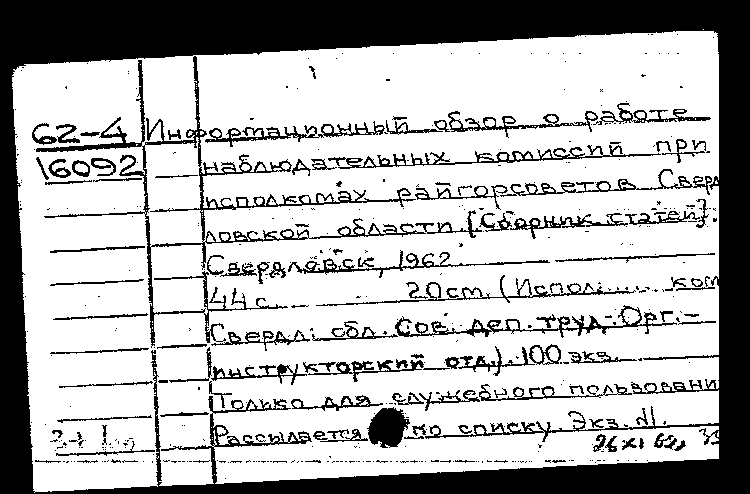 62-4 Информационный обзор о работе
16092 наблюдательных комиссий при
исполкомах райгорсоветов Сверд
ловской области. [Сборник статей].
Свердловск, 1962.
44 с. 20 см. (Исполн. ком
Свердл. обл. Сов. деп. труд. Орг.-
инструкторский отд.). 100 экз.
Только для служебного пользовани
Рассылается по списку. Экз. №1.
26 XI 62